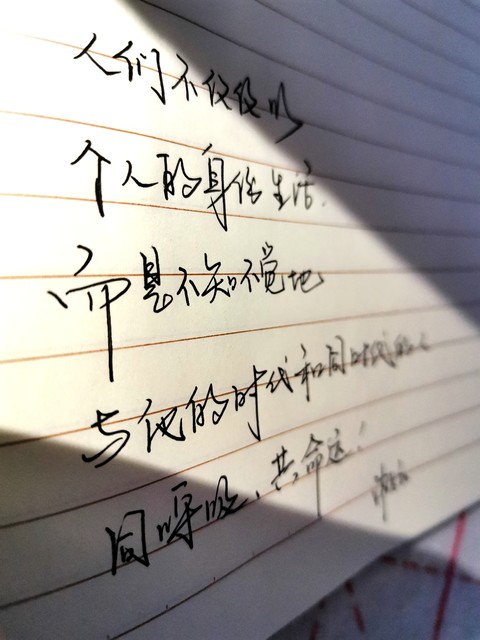 人们不仅仅以
个人的身份生活.
而是不知不觉地
与他的时代和同时代的人
同呼吸、共命运!